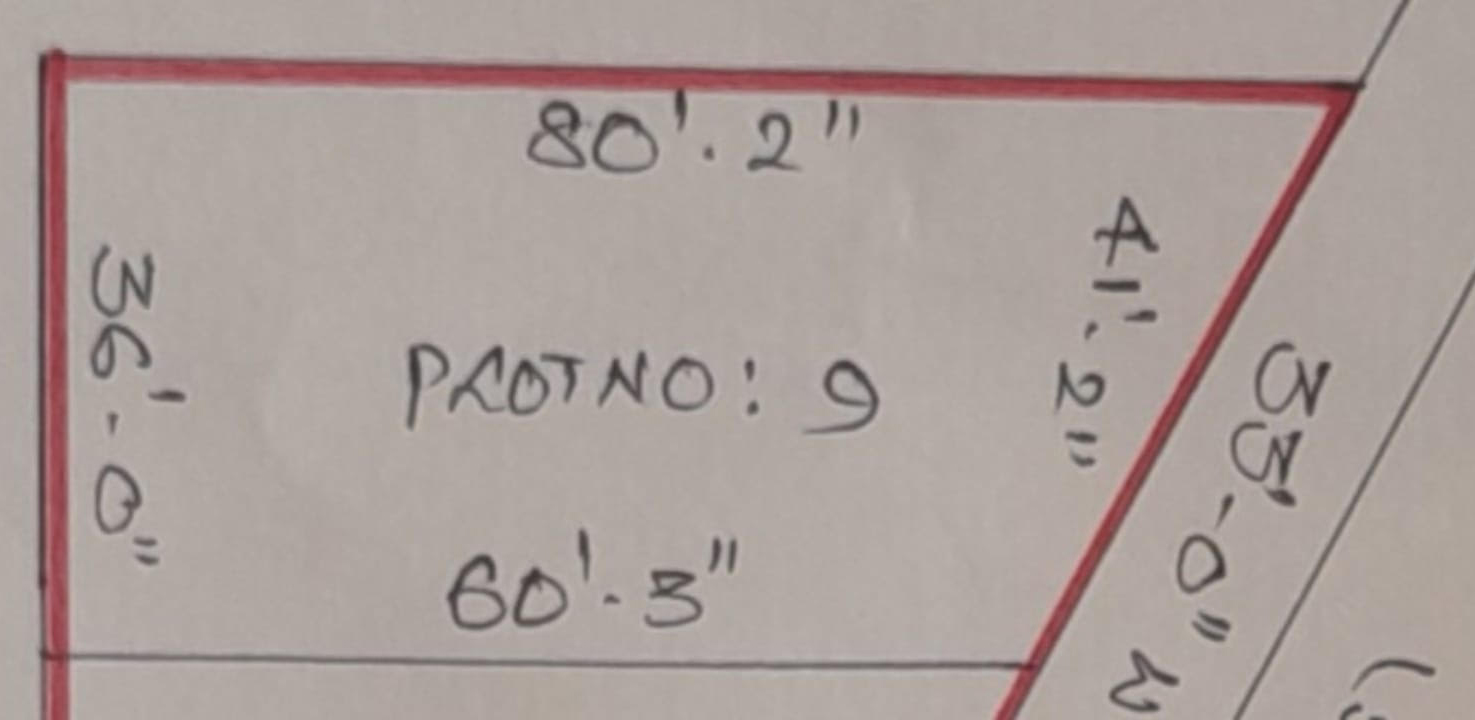 80'.2"
36'-0"
41'.2"
PLOT NO: 9
60'.3"
33'-0" W